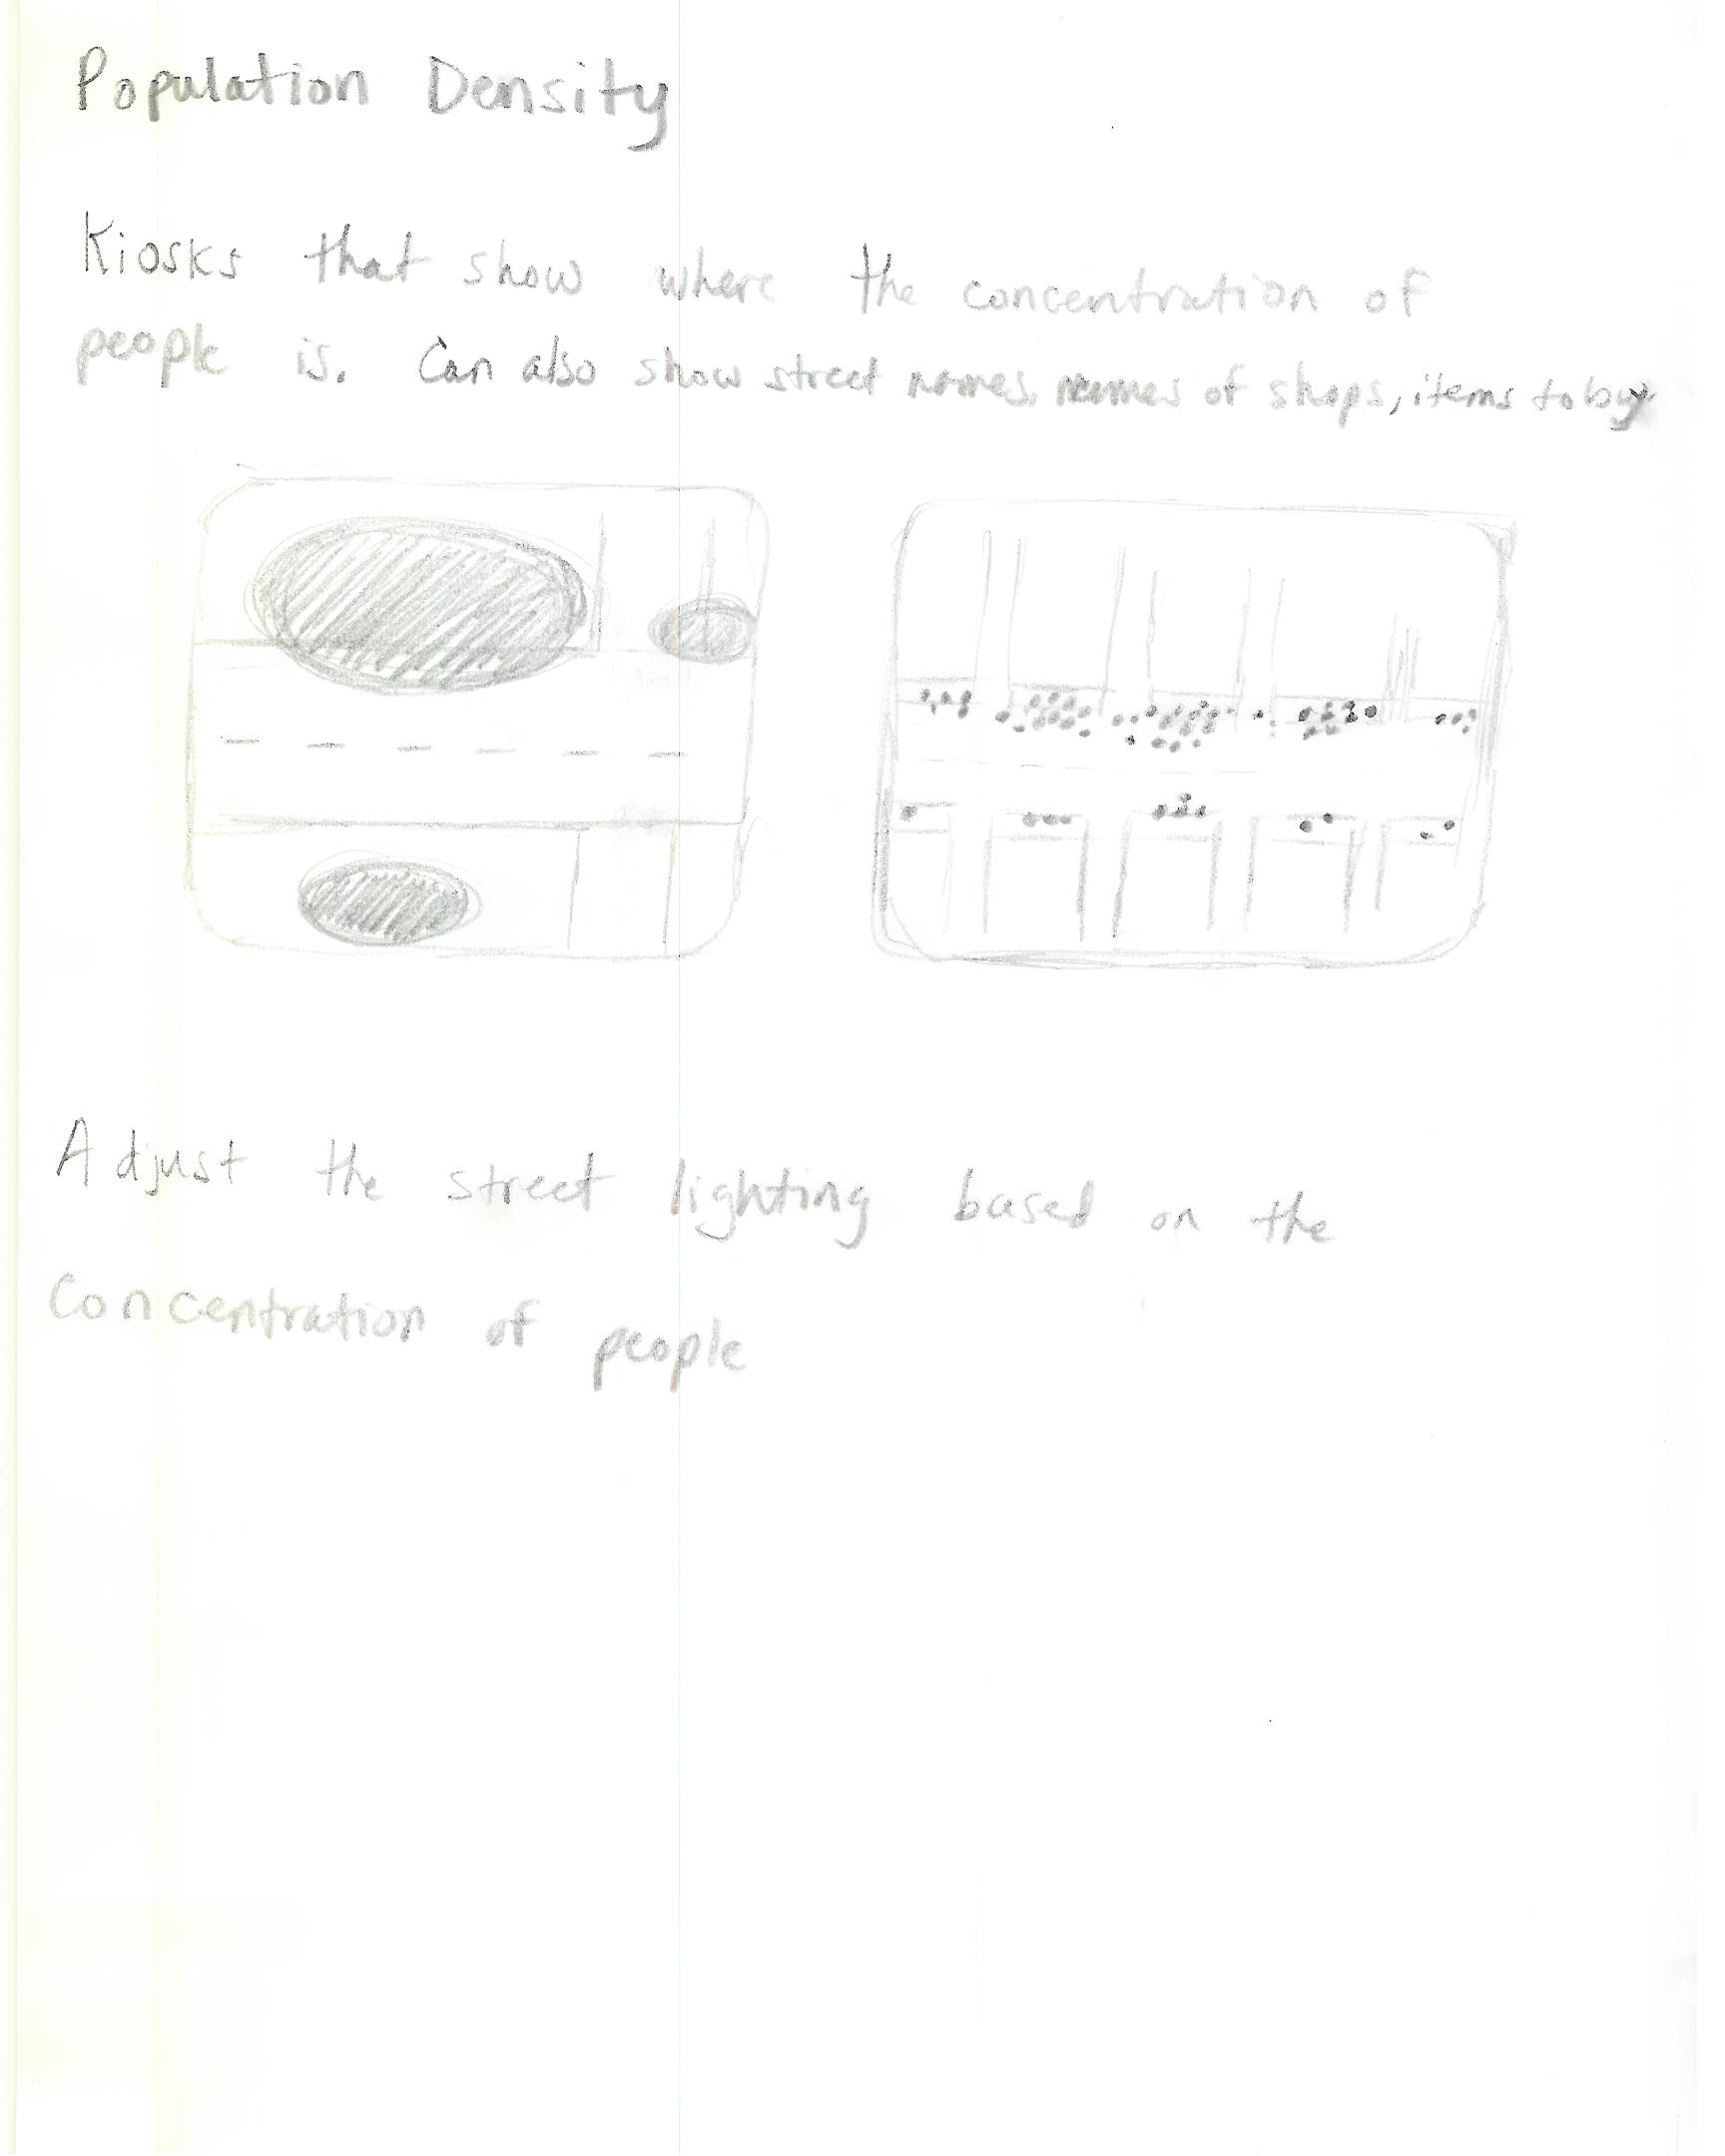 Population Density
Kiosks that show where the concentration of
people is. Can also show street names, names of shops, items to buy
Adjust the street lighting based on the
Concentration of people